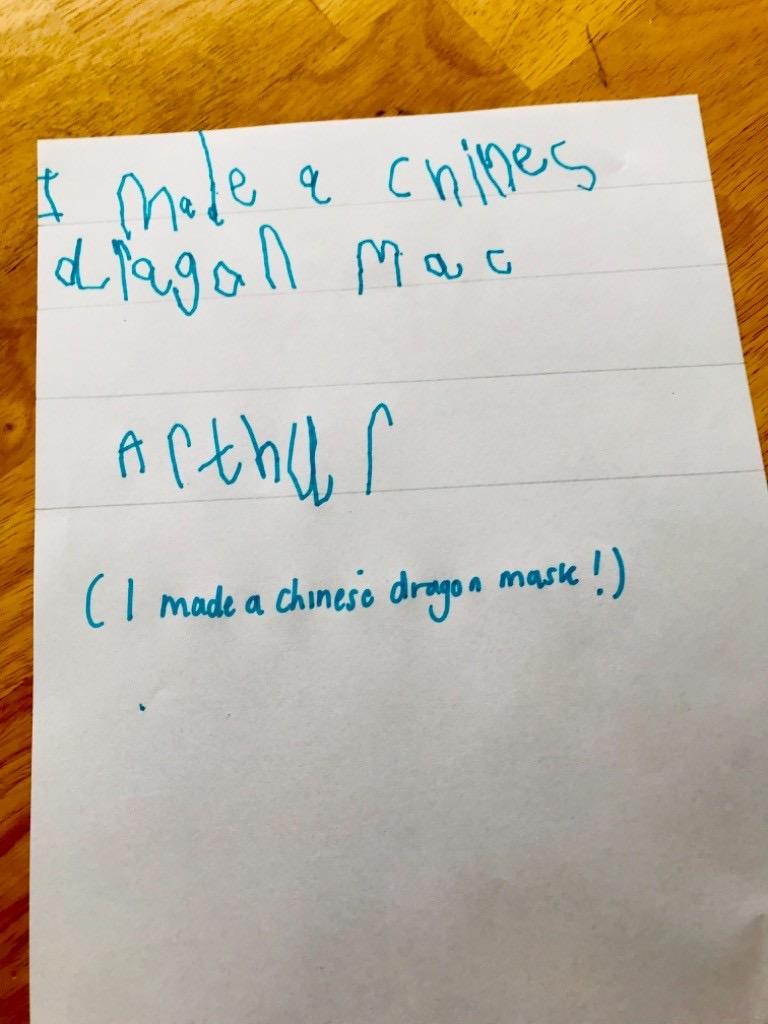 I made a chines
dragon mac
Arthur
(I made a chinese dragon mask!)